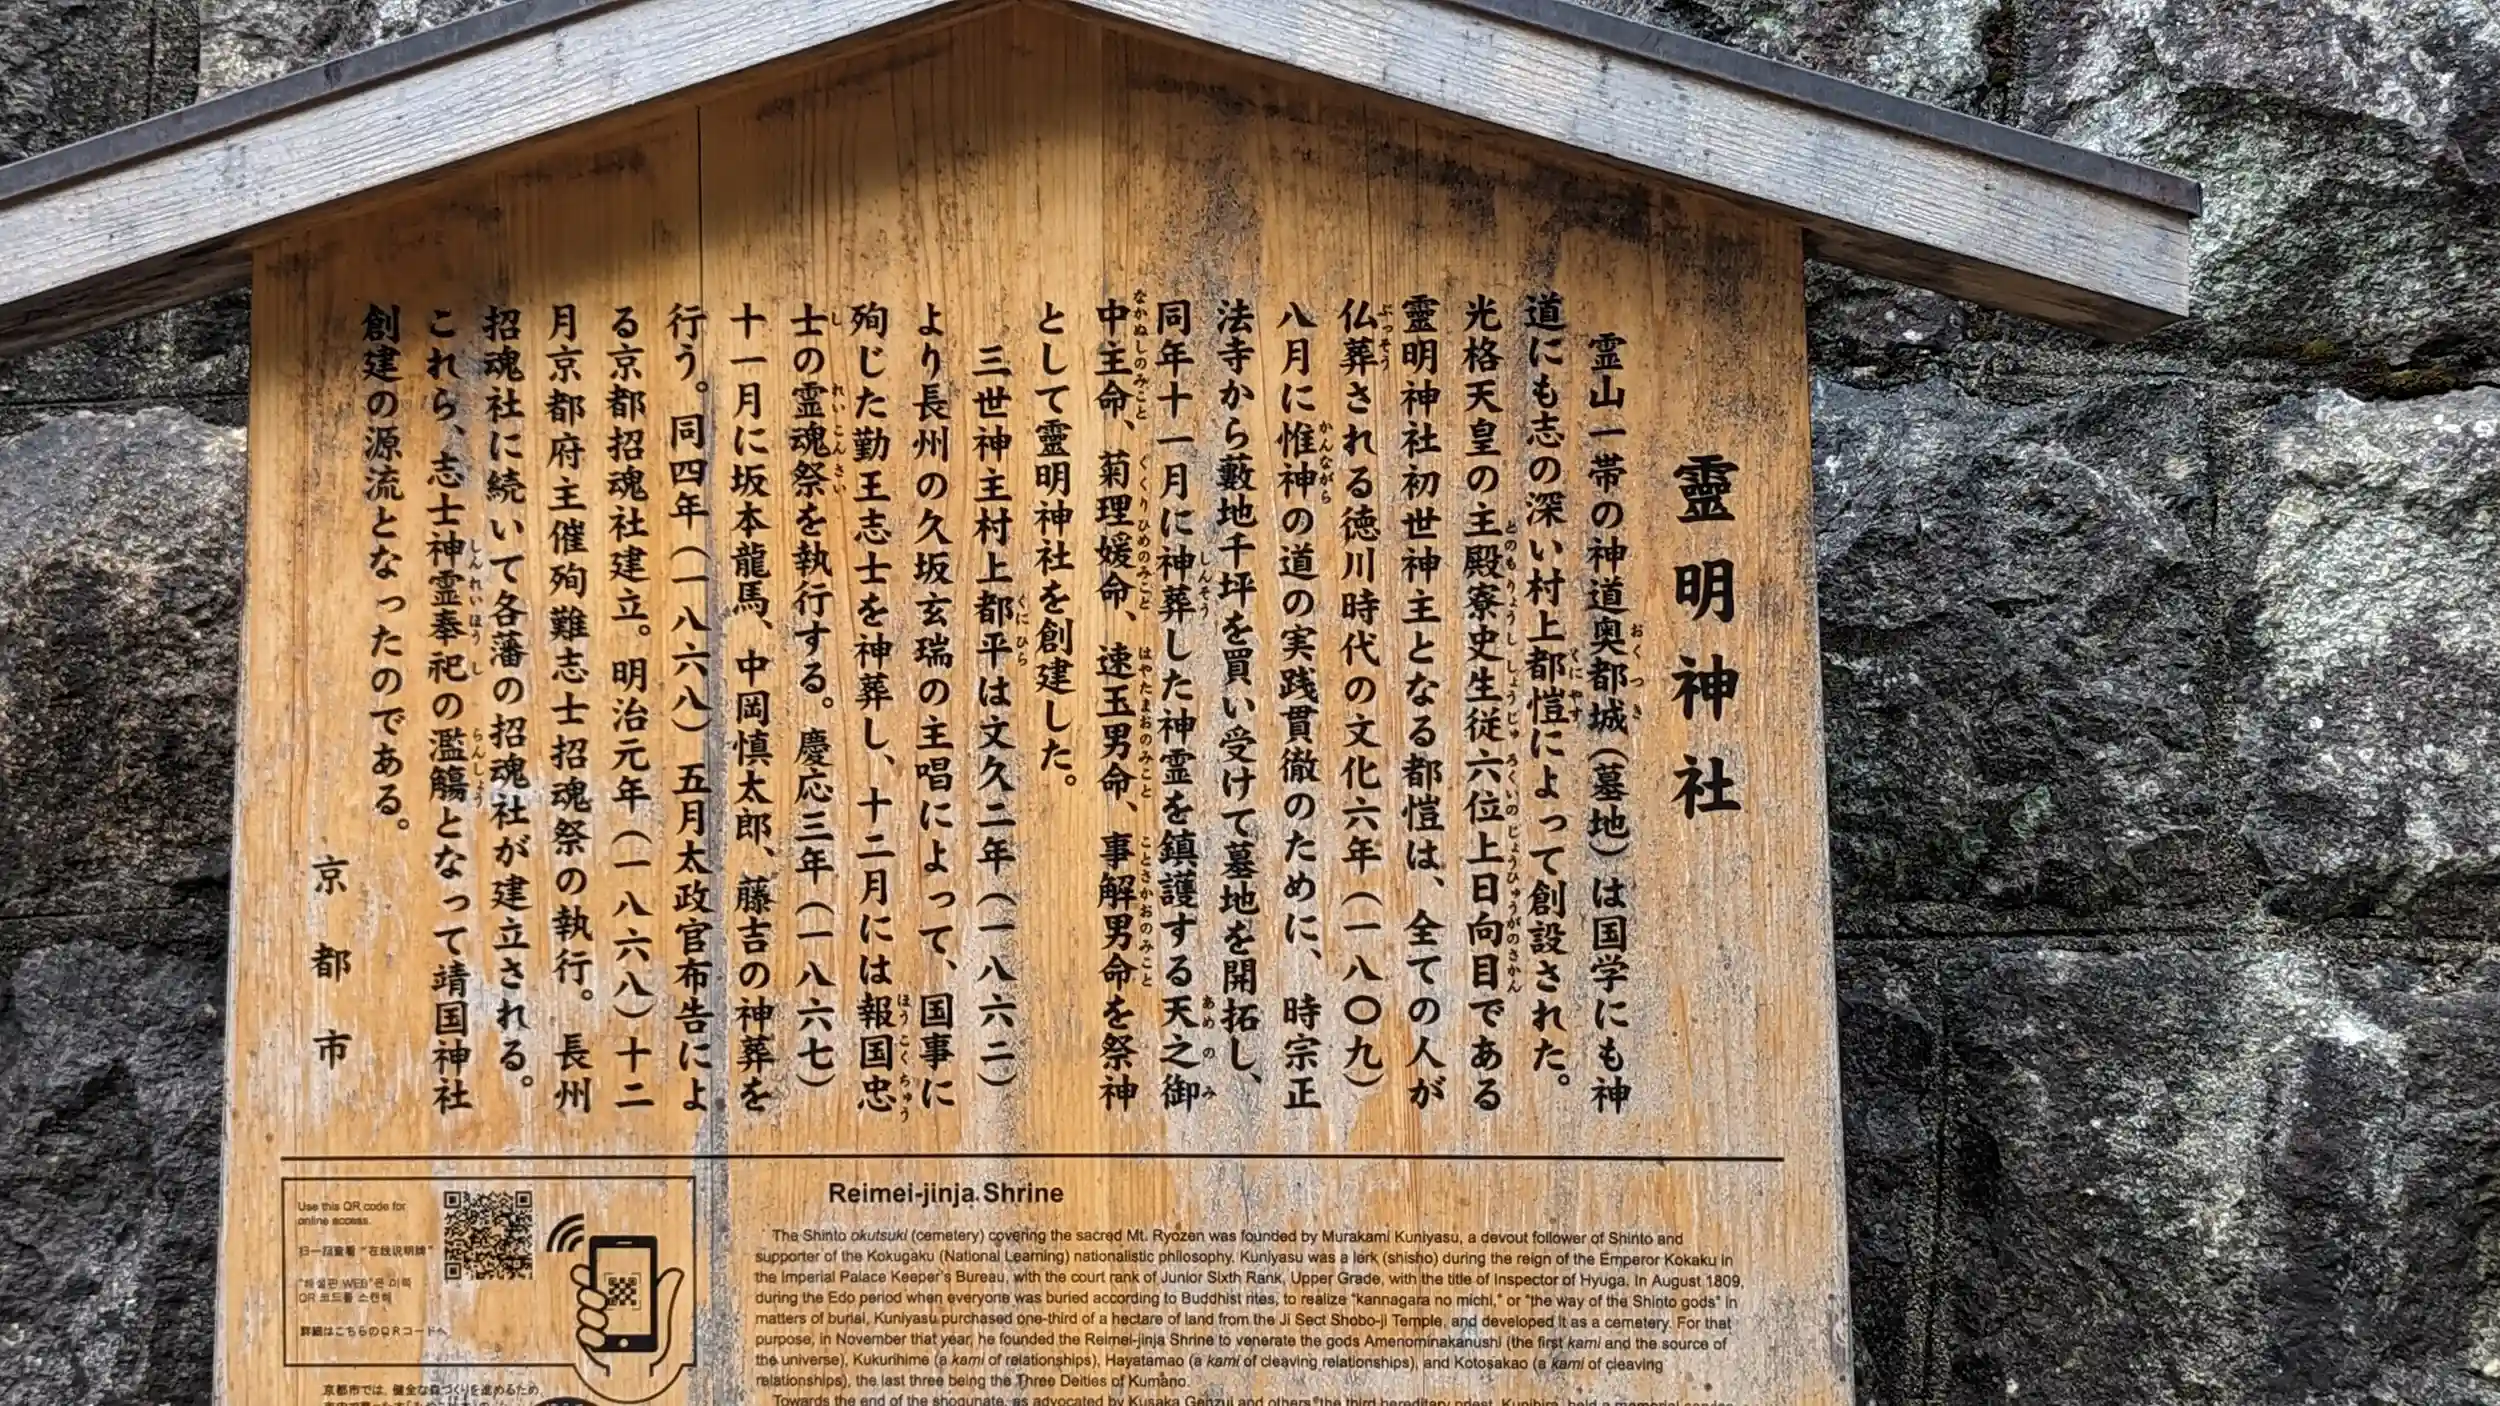 靈明神社
霊山一帯の神道奥都城（墓地）は国学にも神
道にも志の深い村上都愷によって創設された。
光格天皇の主殿寮史生従六位上日向目である
靈明神社初世神主となる都愷は、全ての人が
仏葬される徳川時代の文化六年（一八〇九）
八月に惟神の道の実践貫徹のために、時宗正
法寺から藪地千坪を買い受けて墓地を開拓し、
同年十一月に神葬した神霊を鎮護する天之御
中主命、菊理媛命、速玉男命、事解男命を祭神
として靈明神社を創建した。
三世神主村上都平は文久二年（一八六二）
より長州の久坂玄瑞の主唱によって、国事に
殉じた勤王志士を神葬し、十二月には報国忠
士の霊魂祭を執行する。慶応三年（一八六七）
十一月に坂本龍馬、中岡慎太郎、藤吉の神葬を
行う。同四年（一八六八）五月太政官布告によ
る京都招魂社建立。明治元年（一八六八）十二
月京都府主催殉難志士招魂祭の執行。長州
招魂社に続いて各藩の招魂社が建立される。
これら、志士神霊奉祀の濫觴となって靖国神社
創建の源流となったのである。
京都市
Use this QR code for
online access.
扫一扫查看“在线说明牌”
"해설판 WEB"은 이쪽
QR 코드를 스캔해
詳細はこちらのQRコードへ
京都市では、健全な森づくりを進めるため、
Reimei-jinja Shrine
The Shinto okutsuki (cemetery) covering the sacred Mt. Ryozen was founded by Murakami Kuniyasu, a devout follower of Shinto and
supporter of the Kokugaku (National Learning) nationalistic philosophy. Kuniyasu was a lerk (shisho) during the reign of the Emperor Kokaku in
the Imperial Palace Keeper's Bureau, with the court rank of Junior Sixth Rank, Upper Grade, with the title of Inspector of Hyuga. In August 1809,
during the Edo period when everyone was buried according to Buddhist rites, to realize "kannagara no michi," or "the way of the Shinto gods" in
matters of burial, Kuniyasu purchased one-third of a hectare of land from the Ji Sect Shobo-ji Temple, and developed it as a cemetery. For that
purpose, in November that year, he founded the Reimei-jinja Shrine to venerate the gods Amenominakanushi (the first kami and the source of
the universe), Kukurihime (a kami of relationships), Hayatamao (a kami of cleaving relationships), and Kotosakao (a kami of cleaving
relationships), the last three being the Three Deities of Kumano.
Towards the end of the shogunate, as advocated by Kusaka Genzui and others, the third hereditary priest, Kunihira, held a memorial